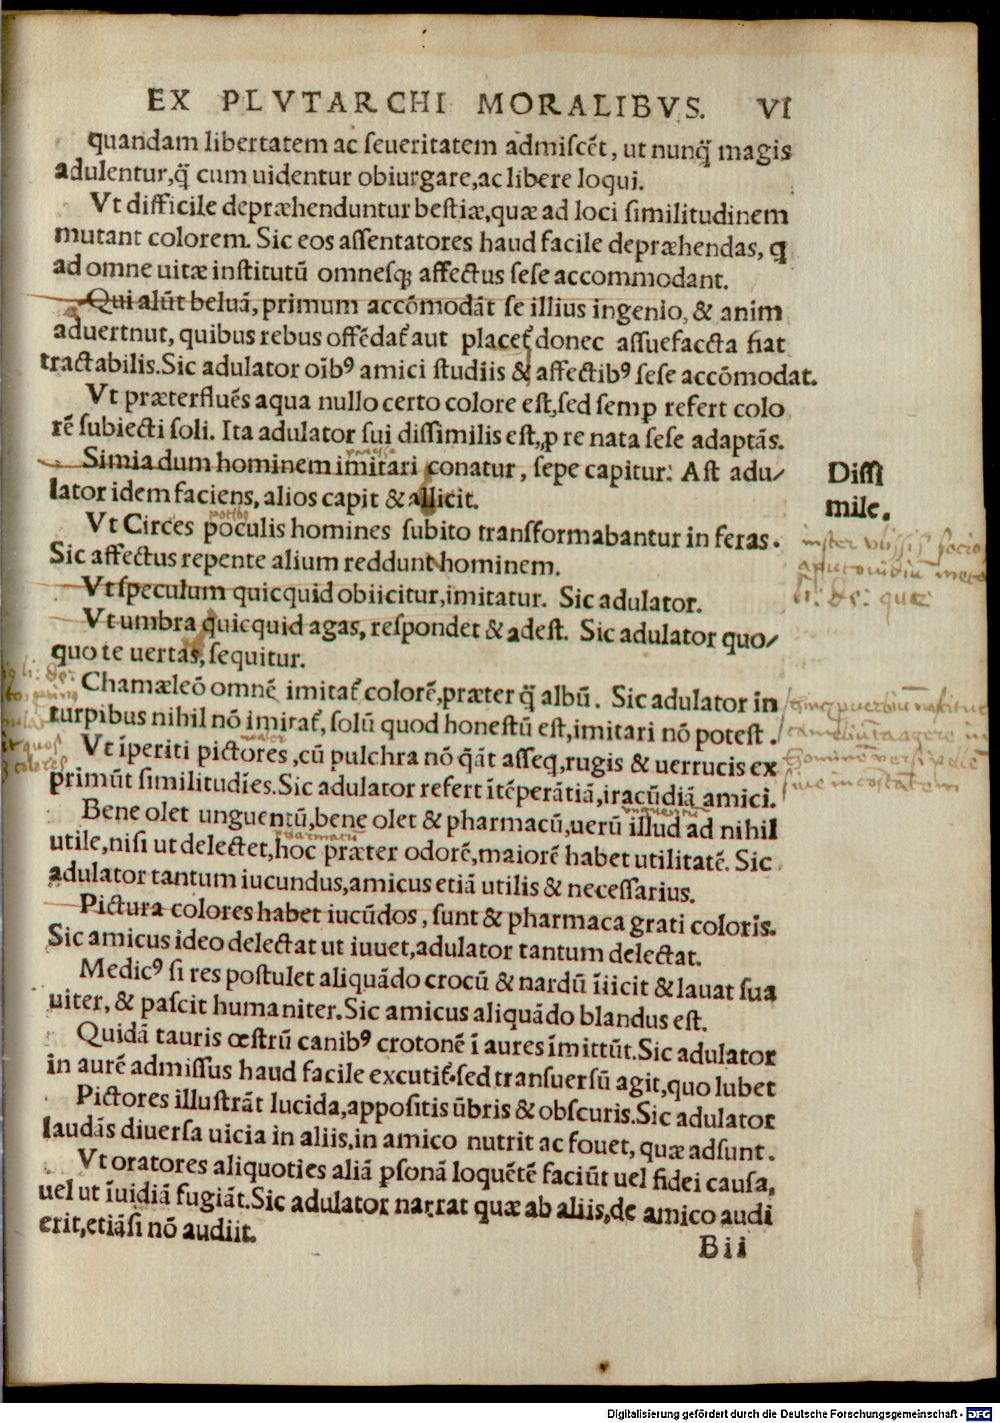 EX PLVTARCHI MORALIBVS. VI
quandam libertatem ac ſeueritatem admiſcēt, ut nunq̃ magis
adulentur,q̃ cum uidentur obiurgare,ac libere loqui.
Vt difficile depræhenduntur beſtiæ,quæ ad loci ſimilitudinem
mutant colorem. Sic eos aſſentatores haud facile depræhendas, q
ad omne uitæ inſtitutū omneſqꝫ affectus ſeſe accommodant.
Qui alūt beluā, primum accōmodāt ſe illius ingenio, & anim
aduertnut, quibus rebus offēdat᷑ aut placet᷑ donec aſſuefaccta fiat
tractabilis.Sic adulator oībꝰ amici ſtudiis & affectibꝰ ſeſe accōmodat.
Vt præterfluēs aqua nullo certo colore eſt,ſed ſemꝑ refert colo
rē ſubiecti ſoli. Ita adulator ſui diſſimilis eſt,ꝓ re nata ſeſe adaptās.
Simia dum hominem imitari conatur, ſepe capitur: Aſt adu/
lator idem faciens, alios capit & allicit.
Diſſi
mile.
Vt Circes poculis homines ſubito transformabantur in feras.
Sic affectus repente alium reddunt hominem.
Vt ſpeculum quicquid obiicitur,imitatur. Sic adulator.
Vt umbra quicquid agas, reſpondet & adeſt. Sic adulator quo/
quo te uertas, ſequitur.
Chamæleō omnē imitat᷑ colorē,præter q̃ albū. Sic adulator in
turpibus nihil nō imitat᷑, ſolū quod honeſtū eſt,imitari nō poteſt.
Vt īperiti pictores,cū pulchra nō q̄āt aſſeq,rugis & uerrucis ex
primūt ſimilitudīes.Sic adulator refert ītēperātiā,iracūdiā amici.
Bene olet unguentū,bene olet & pharmacū,uerū illud ad nihil
utile,niſi ut delectet,hoc præter odorē,maiorē habet utilitatē. Sic
adulator tantum iucundus,amicus etiā utilis & neceſſarius.
Pictura colores habet iucūdos, ſunt & pharmaca grati coloris.
Sic amicus ideo delectat ut iuuet,adulator tantum delectat.
Medicꝰ ſi res poſtulet aliquādo crocū & nardū īiicit & lauat ſua
uiter, & paſcit humaniter.Sic amicus aliquādo blandus eſt.
Quidā tauris œſtrū canibꝰ crotonē ī aures īmittūt.Sic adulator
in aurē admiſſus haud facile excutit᷑.ſed tranſuerſū agit,quo lubet
Pictores illuſtrāt lucida,appoſitis ūbris & obſcuris.Sic adulator
laudās diuerſa uicia in aliis,in amico nutrit ac fouet, quæ adſunt.
Vt oratores aliquoties aliā ꝑſonā loquētē faciūt uel fidei cauſa,
uel ut īuidiā fugiāt.Sic adulator narrat quæ ab aliis,de amico audi
erit,etiāſi nō audiit.
Bii
Digitalisierung gefördert durch die Deutsche Forschungsgemeinschaft - DFG